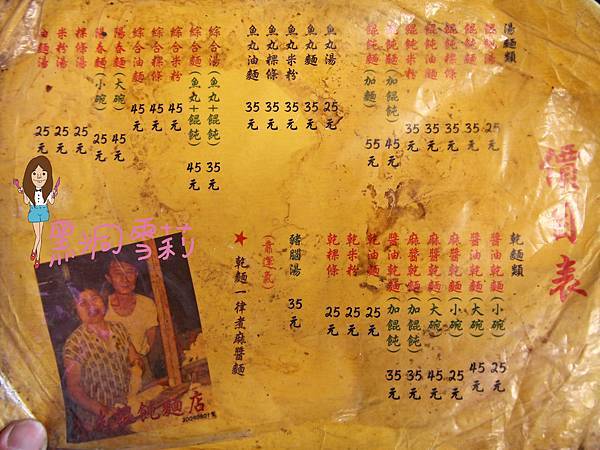 價目表
湯麵類
餛飩湯 25元
餛飩麵 35元
餛飩粿條 35元
餛飩米粉 35元
餛飩油麵 35元
餛飩麵(加餛飩) 45元
餛飩麵(加麵) 55元
魚丸湯 25元
魚丸麵 35元
魚丸米粉 35元
魚丸粿條 35元
魚丸油麵 35元
綜合湯(魚丸+餛飩) 35元
綜合麵(魚丸+餛飩) 45元
綜合米粉 45元
綜合粿條 45元
綜合油麵 45元
陽春麵(大碗) 45元
陽春麵(小碗) 25元
粿條湯 25元
米粉湯 25元
油麵湯 25元
乾麵類
醬油乾麵(小碗) 25元
醬油乾麵(大碗) 45元
麻醬乾麵(小碗) 25元
麻醬乾麵(大碗) 45元
麻醬乾麵(加餛飩) 35元
醬油乾麵(加餛飩) 35元
乾油麵 25元
乾米粉 25元
乾粿條 25元
豬腦湯 35元
(靠運氣)
★乾麵一律煮麻醬麵
黑洞雪莉
餛飩麵店